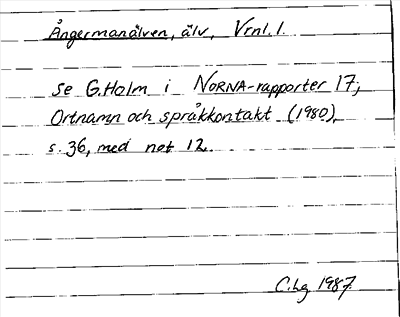 Ångermanälven, älv, Vrml.l.
se G. Holm i NORNA-rapporter 17;
Ortnamn och språkkontakt (1980),
s. 36, med not 12.
C.Lg 1987.